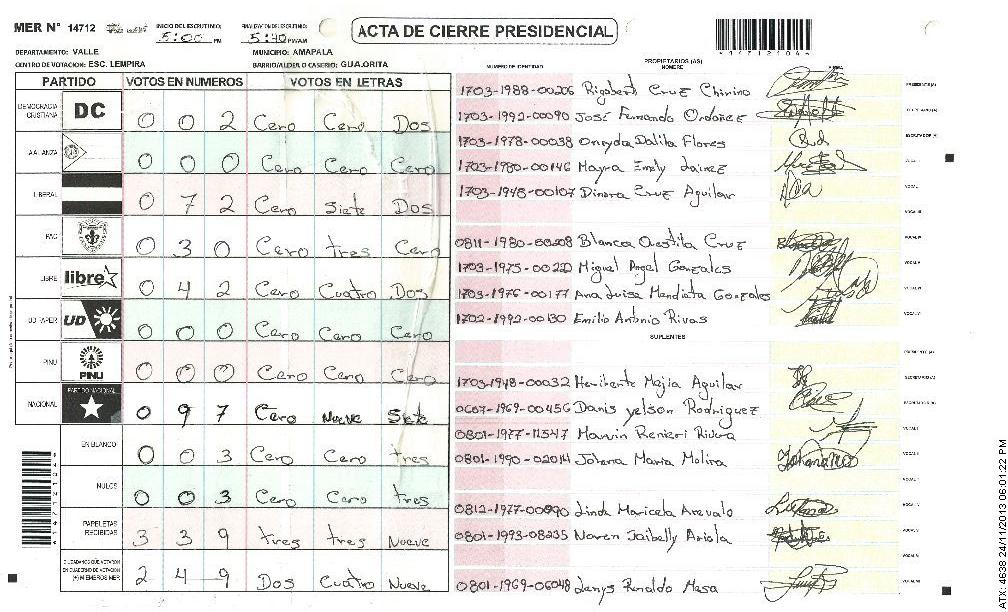 MER N° 14712
INICIO DEL ESCRUTINIO: 5:00 PM
FINALIZACION DEL ESCRUTINIO: 5:40 PM/AM
ACTA DE CIERRE PRESIDENCIAL
DEPARTAMENTO: VALLE
MUNICIPIO: AMAPALA
CENTRO DE VOTACION: ESC. LEMPIRA
BARRIO/ALDEA O CASERIO: GUAJORITA
PARTIDO VOTOS EN NUMEROS VOTOS EN LETRAS
DEMOCRACIA CRISTIANA DC 0 0 2 Cero Cero Dos
ALIANZA 0 0 0 Cero Cero Cero
LIBERAL 0 7 2 Cero Siete Dos
PAC 0 3 0 Cero tres Cero
LIBRE libre 0 4 2 Cero Cuatro Dos
UD FAPER UD 0 0 0 Cero Cero Cero
PINU PINU 0 0 0 Cero Cero Cero
NACIONAL PARTIDO NACIONAL 0 9 7 Cero Nueve Siete
EN BLANCO 0 0 3 Cero Cero tres
NULOS 0 0 3 Cero Cero tres
PAPELETAS RECIBIDAS 3 3 9 tres tres Nueve
CIUDADANOS QUE VOTARON EN CUADERNO DE VOTACION (+) MIEMBROS MER 2 4 9 Dos Cuatro Nueve
NUMERO DE IDENTIDAD
PROPIETARIOS (AS)
NOMBRE
FIRMA
1703-1988-00206 Rigobert Cruz Chinino PRESIDENTE (A)
1703-1992-00090 José Fernando Ordoñez SECRETARIO (A)
1703-1978-00038 Oneyda Dalila Flores ESCRUTADOR (A)
1703-1980-00146 Mayra Emely Lainez VOCAL I
1703-1948-00107 Dinora Cruz Aguilar VOCAL II
VOCAL III
0811-1980-00208 Blanca Cruz VOCAL IV
1703-1975-00220 Miguel Angel Gonzales VOCAL V
1703-1976-00177 Ana Luisa Mendieta Gonzales VOCAL VI
1702-1992-00130 Emilio Antonio Rivas VOCAL VII
SUPLENTES
PRESIDENTE (A)
1703-1948-00032 Mejia Aguilar SECRETARIO (A)
0607-1969-00456 Danis yelson Rodriguez ESCRUTADOR (A)
0801-1977-11547 Marvin Renieri Rivera VOCAL I
0801-1990-02014 Johena Maria Molina VOCAL II
VOCAL III
0812-1977-00090 Linda Maricela Arevalo VOCAL IV
0801-1993-08235 Noren Jaibelly Arriola VOCAL V
VOCAL VI
0801-1969-06048 Lenys Renaldo Mesa VOCAL VII
ATX: 4638 24/11/2013 06:01:22 PM